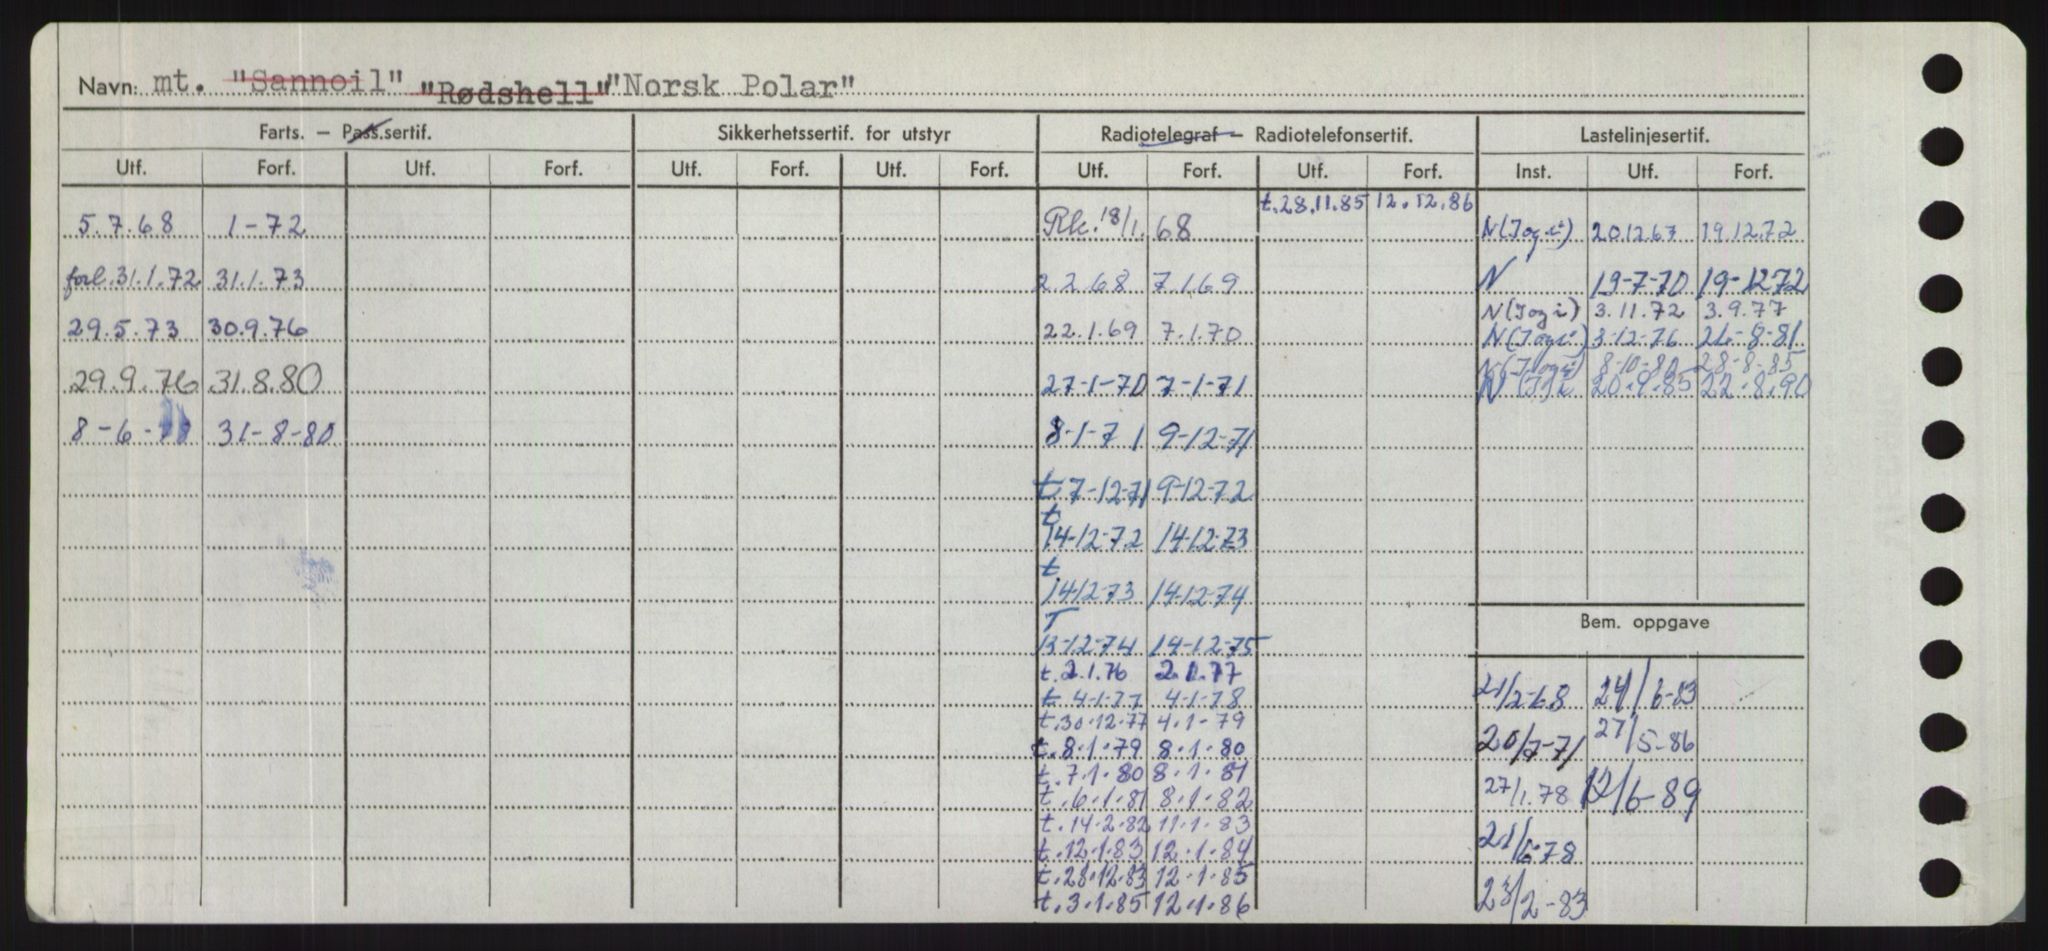 Navn: mt. "Sannoil" "Rødshell" "Norsk Polar"
Farts. — Pass.sertif. Sikkerhetssertif. for utstyr Radiotelegraf — Radiotelefonsertif. Lastelinjesertif.
Utf. Forf. Utf. Forf. Utf. Forf. Utf. Forf. Utf. Forf. Utf. Forf. Inst. Utf. Forf.
t.28.11.85 12.12.86
5.7.68 1-72 Rk. 18/1. 68 N(Jogi) 20.12.67 19.12.72
forl. 31.1.72 31.1.73 2.2.68 7.1.69 N 19-7-70 19-12-72
N(Jogi) 3.11.72 3.9.77
29.5.73 30.9.76 22.1.69 7.1.70 N(Jogi) 3-12-76 21-8-81
8-10-80 28-8-85
29.9.76 31.8.80 27-1-70 7-1-71 N 20.9.85 22.8.90
8-6- 31-8-80 8-1-71 9-12-71
t 7-12-71 9-12-72
t
14-12-72 14-12-73
t
14-12-73 14-12-74
T Bem. oppgave
13-12-74 14-12-75
t. 2.1.76 2.1.77
t 4-1-77 4-1-78 21/2-68 24/6-83
t.30.12.77 4.1-79
t.8.1.79 8.1.80 20/7-71 27/5-86
t.7.1.80 8.1.81
t.6.1.81 8.1.82 27/1.78 12/6-89
t.14.2.82 11.1.83
t.12.1.83 12.1.84 21/6-78
t.28.12.83 12.1.85
t.3.1.85 12.1.86 23/2-83